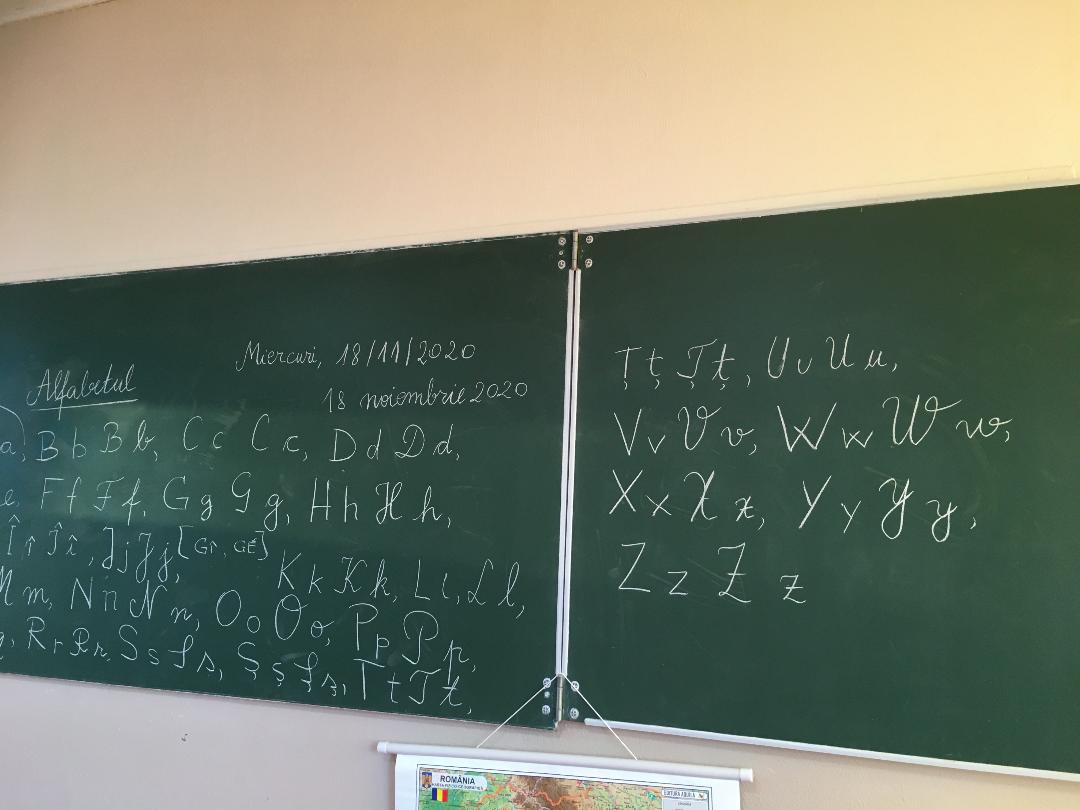 Miercuri, 18/11/2020
18 noiembrie 2020
Alfabetul
a, B b B b, C c C c, D d D d,
e, F f F f, G g G g, H h H h,
Î î Î î, J j J j, [GI, GE]
K k K k, L l, L l,
M m, N n N n, O o O o, P p P p,
q, R r R r, S s S s, Ș ș Ș ș, T t T t,
Ț ț Ț ț, U u U u,
V v V v, W w W w,
X x X x, Y y Y y,
Z z Z z
ROMÂNIA
EDITURA AQUILA